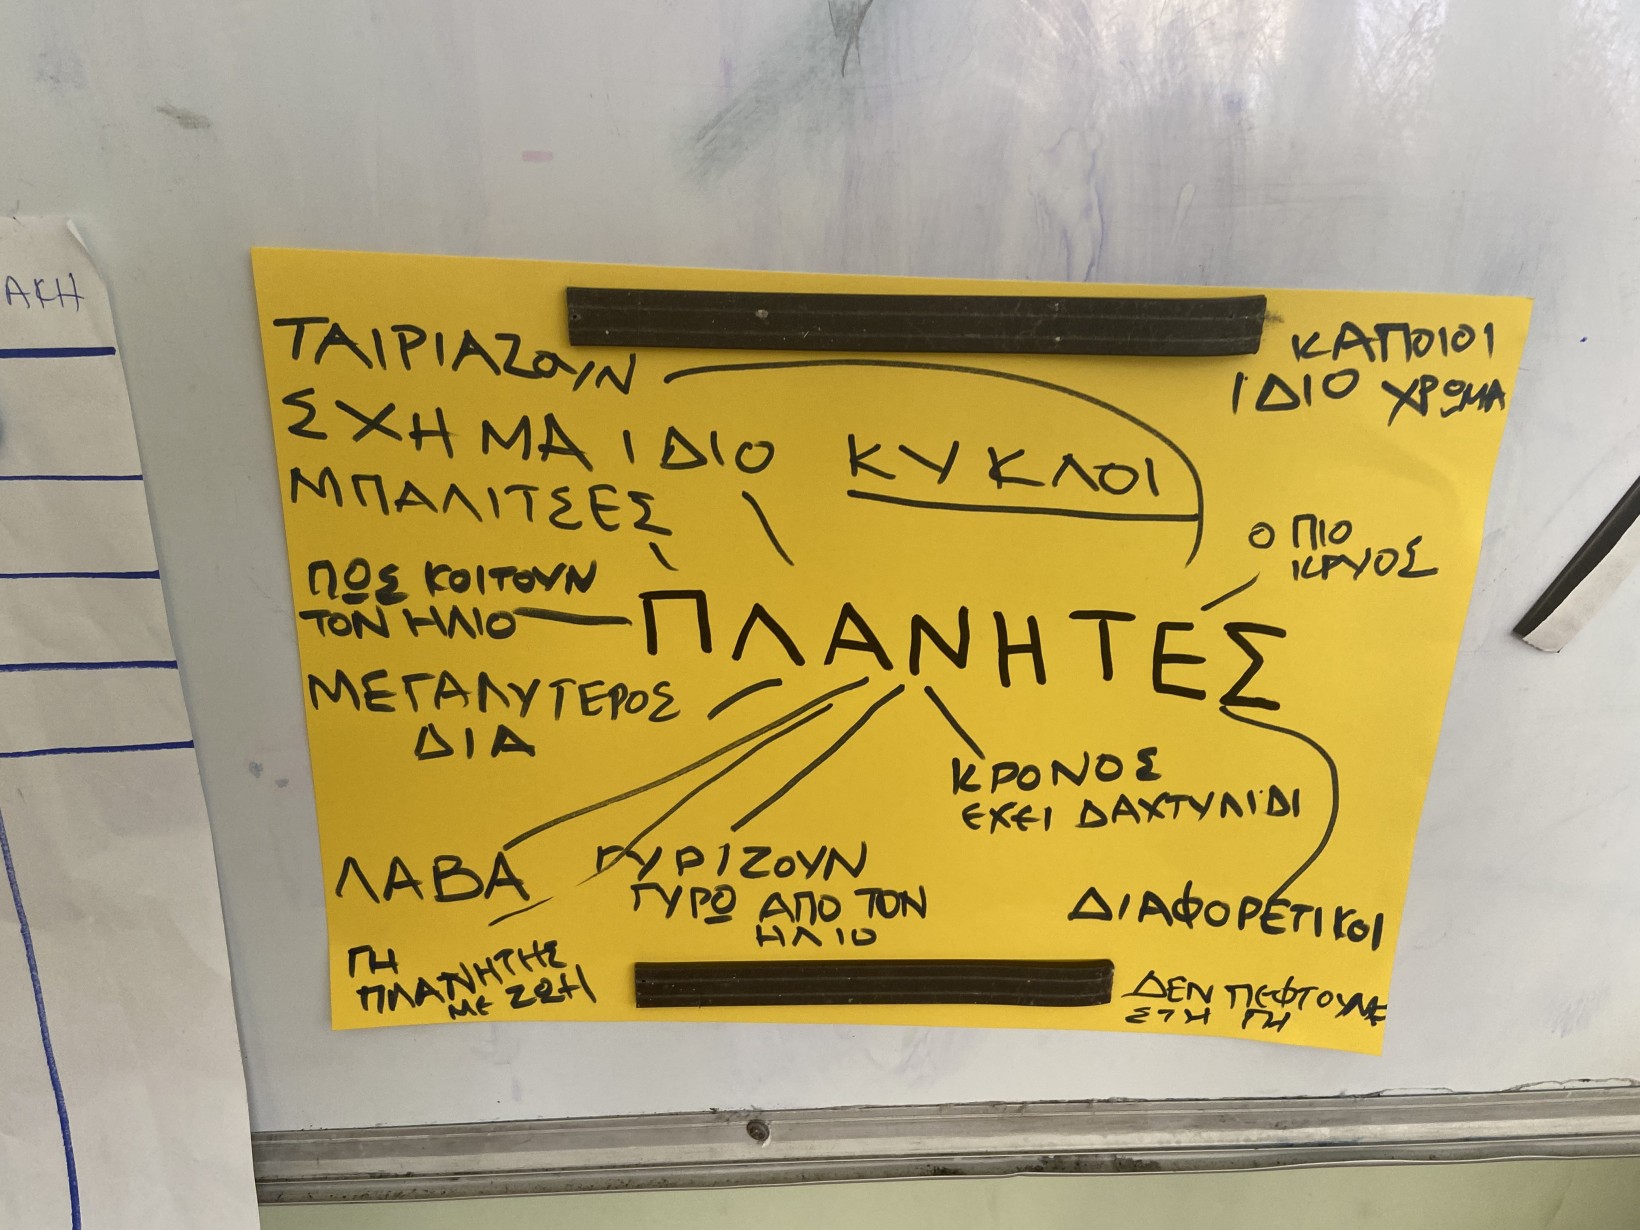 ΑΚΗ
ΤΑΙΡΙΑΖΟΥΝ
ΣΧΗΜΑ ΙΔΙΟ
ΜΠΑΛΙΤΣΕΣ
ΚΥΚΛΟΙ
ΚΑΠΟΙΟΙ
ΙΔΙΟ ΧΡΩΜΑ
Ο ΠΙΟ
ΚΡΥΟΣ
ΠΩΣ ΚΟΙΤΟΥΝ
ΤΟΝ ΗΛΙΟ
ΠΛΑΝΗΤΕΣ
ΜΕΓΑΛΥΤΕΡΟΣ
ΔΙΑ
ΚΡΟΝΟΣ
ΕΧΕΙ ΔΑΧΤΥΛΙΔΙ
ΛΑΒΑ
ΓΥΡΙΖΟΥΝ
ΓΥΡΩ ΑΠΟ ΤΟΝ
ΗΛΙΟ
ΔΙΑΦΟΡΕΤΙΚΟΙ
ΓΗ
ΠΛΑΝΗΤΗΣ
ΜΕ ΖΩΗ
ΔΕΝ ΠΕΦΤΟΥΜΕ
ΣΤΗ ΓΗ